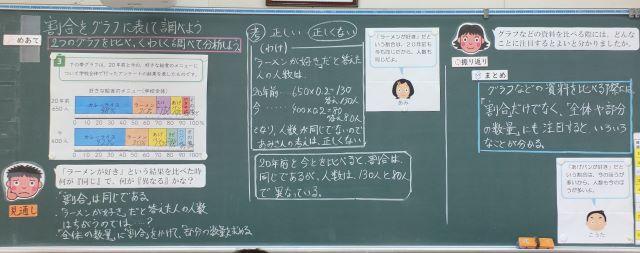 割合をグラフに表して調べよう
めあて
2つのグラフを比べ、くわしく調べて分析しよう。
3
下の帯グラフは、20年前と今の、好きな給食のメニューに
ついて学校全体で行ったアンケートの結果を表したものです。
好きな給食のメニュー(学校全体)
20年前
650人
カレーライス
ラーメン
20%
0 10 20 30 40 50 60 70 80 90 100%
今
400人
カレーライス
ラーメン
20%
0 10 20 30 40 50 60 70 80 90 100%
「ラーメンが好き」という結果を比べた時
何が『同じ』で、何が『異なる』かな?
見通し
・「割合」は同じである。
・「ラーメンが好き」だと答えた人の人数
はちがうのでは…?
・「全体の数量」に「割合」をかけて、「部分の数量」を求める
考
正しい
正しくない
(わけ)
「ラーメンが好き」だと答え
た人の人数は、
20年前… 650×0.2=130
答え130人
今… 400×0.2=80
答え80人
となり、人数が同じでないので
あみさんの考えは、正しくない
20年前と今とを比べると、割合は、
同じであるが、人数は、130人と80人
で異なっている。
「ラーメンが好き」だ
という割合は、20年前も
今も同じだから、人数
も同じだよ。
あみ
グラフなどの資料を比べる際には、どんな
ことに注目するとよいと分かりましたか。
振り返り
まとめ
グラフなどの資料を比べる際には
「割合」だけでなく、「全体や部分
の数量」にも注目すると、いろいろ
なことが分かる。
「あげパンが好き」と
いう割合は、今のほうが
多いから、人数も今のほ
うが多いよ。
こうた